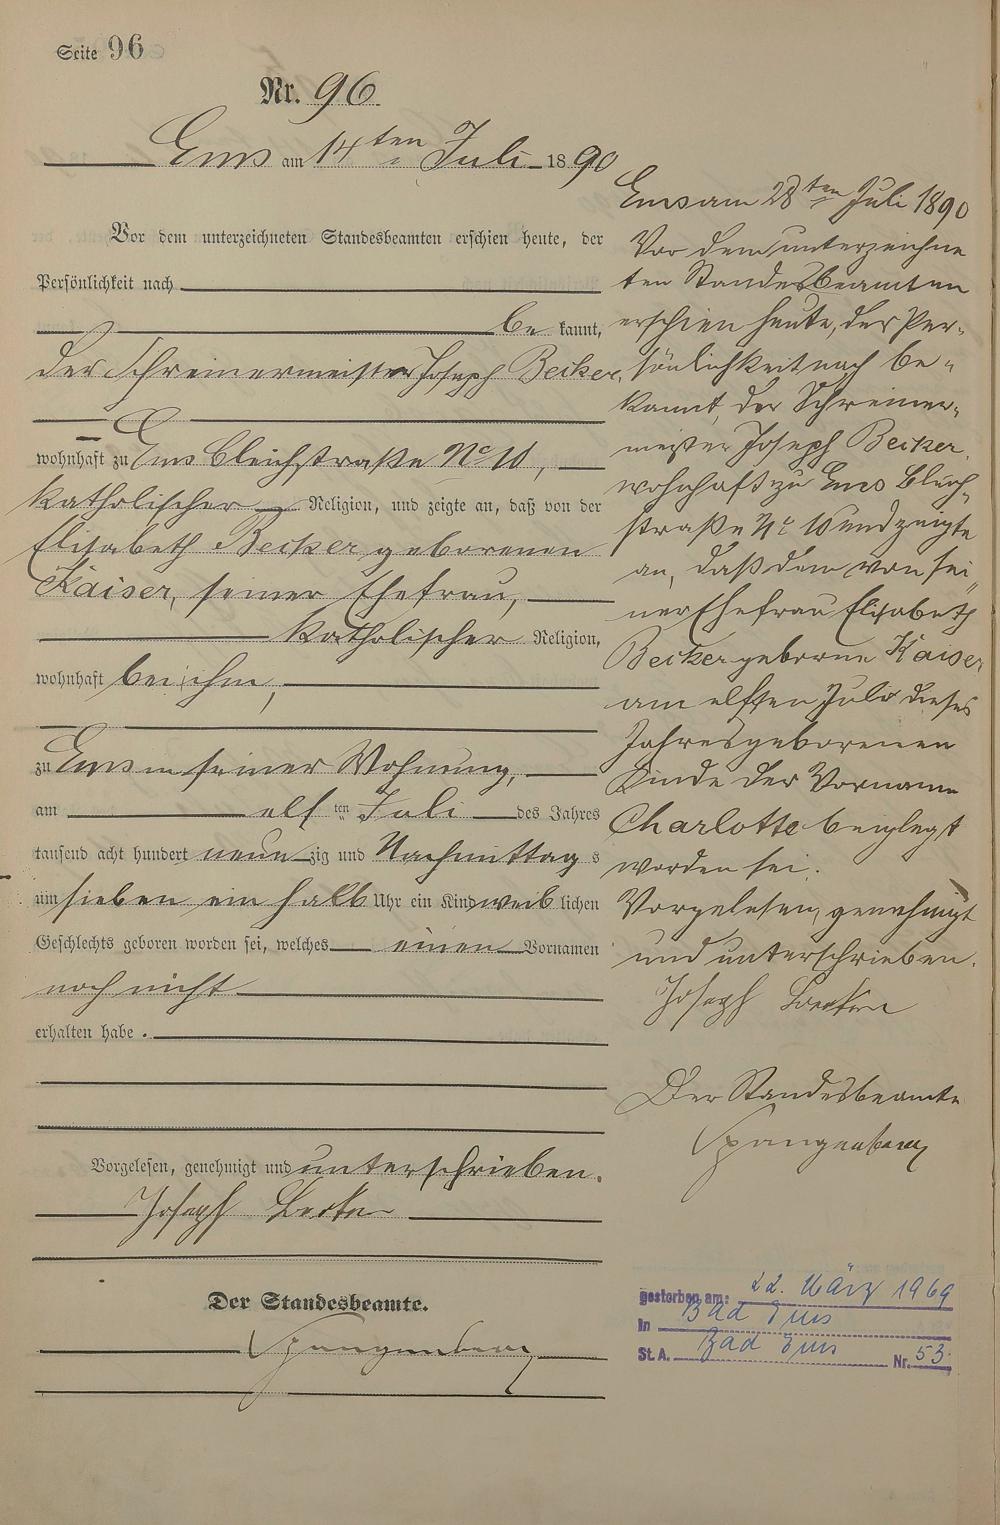 Seite 96
Nr. 96
Ems am 14ten Juli 1890
Vor dem unterzeichneten Standesbeamten erschien heute, der
Persönlichkeit nach
be kannt,
der Schreinermeister Joseph Becker,
wohnhaft zu Ems Bleichstraße No 10,
katholischer Religion, und zeigte an, daß von der
Elisabeth Becker geborenen
Kaiser, seiner Ehefrau,
katholischer Religion,
wohnhaft bei ihm,
zu Ems in seiner Wohnung,
am elf ten Juli des Jahres
tausend acht hundert neun zig und Nachmittag s
um sieben ein halb Uhr ein Kind weib lichen
Geschlechts geboren worden sei, welches einen Vornamen
noch nicht
erhalten habe.
Vorgelesen, genehmigt und unterschrieben.
Joseph Becker
Der Standesbeamte.
Spangenberg
Ems am 28ten Juli 1890
Vor dem unterzeichne
ten Standesbeamten
erschien heute, der Per-
sönlichkeit nach be-
kannt, der Schreiner-
meister Joseph Becker,
wohnhaft zu Ems Bleich-
straße No 10 und zeigte
an, daß dem von sei
ner Ehefrau Elisabeth
Becker geborne Kaiser
am elften Juli dieses
Jahres geborenen
Kinde der Vorname
Charlotte beigelegt
worden sei.
Vorgelesen, genehmigt
und unterschrieben.
Joseph Becker
Der Standesbeamte
Spangenberg
gestorben am: 22. März 1969
in Bad Ems
St. A. Bad Ems Nr. 53